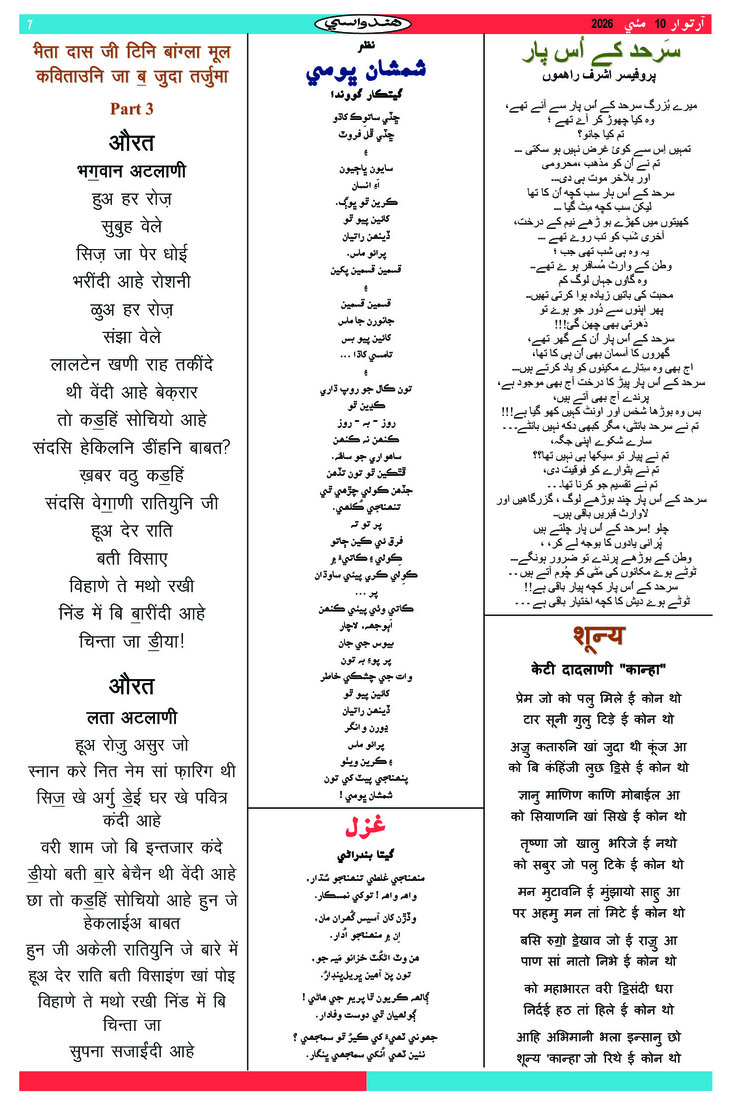 7
هندواسي
آرتوار 10 مئي 2026
मीता दास जी टिनि बांग्ला मूल
कविताउनि जा ॿ जुदा तर्जुमा
Part 3
औरत
भॻवान अटलाणी
हुअ हर रोज़
सुबुह वेले
सिज जा पेर धोई
भरींदी आहे रोशनी
ळुअ हर रोज़
संझा वेले
लालटेन खणी राह तकींदे
थी वेंदी आहे बेक़रार
तो कॾहिं सोचियो आहे
संदसि हेकिलनि ॾींहनि बाबत?
ख़बर वठु कॾहिं
संदसि वेॻाणी रातियुनि जी
हूअ देर राति
बती विसाए
विहाणे ते मथो रखी
निंड में बि ॿारींदी आहे
चिन्ता जा ॾीया!
औरत
लता अटलाणी
हूअ रोज़ु असुर जो
स्नान करे नित नेम सां फ़ारिग थी
सिज खे अर्गु ॾेई घर खे पवित्र
कंदी आहे
वरी शाम जो बि इन्तजार कंदे
ॾीयो बती ॿारे बेचैन थी वेंदी आहे
छा तो कॾहिं सोचियो आहे हुन जे
हेकलाईअ बाबत
हुन जी अकेली रातियुनि जे बारे में
हूअ देर राति बती विसाइंण खां पोइ
विहाणे ते मथो रखी निंड में बि
चिन्ता जा
सुपना सजाईंदी आहे
نظر
شمشان ڀومي
گيتڪار گووندا
ڇڏي ساتوِڪ کاڌو
ڇڏي ڦل فروٽ
۽
سايون ڀاڄيون
اَءِ انسان
ڪرين ٿو ڀوڳ.
کائين پيو ٿو
ڏينهن راتيان
پرائو ماس.
قسمين قسمين پکين
۽
قسمين قسمين
جانورن جا ماس
کائين پيو بس
تامسي کاڌا ...
۽
تون ڪال جو روپ ڌاري
ڪڍين ٿو
روز - بہ - روز
ڪنهن نہ ڪنهن
ساهواري جو ساهہ.
ڦٿڪين ٿو تون تڏهن
جڏهن ڪولي چڙهي ٿي
تنهنجي ڳلهي.
پر تو تہ
فرق ئي ڪين ڄاتو
ڪولي ۽ ڪاتيءَ ۾
ڪولي ڪري پيئي ساوڌان
پر ...
ڪاتي وڍي پيئي ڪنهن
اَٻوجهہ، لاچار
بيوس جي جان
پر پوءِ بہ تون
وات جي چشڪي خاطر
کائين پيو ٿو
ڏينهن راتيان
ڍورن وانگر
پرائو ماس
۽ ڪرين ويٺو
پنهنجي پيٽ کي تون
شمشان ڀومي !
غزل
گيتا بندراڻي
منهنجي غلطي تنهنجو سُڌار.
واھہ واھہ ! توکي نمسڪار.
وڏڙن کان آسيس گُهران مان.
اِن ۾ منهنجو اُڌار.
من وٽ اڻکٽ خزانو مَيہ جو.
تون پڻ آهين ڀريل ڀنڊارُ.
ڳالهہ ڪريون ٿا پريم جي هاڻي !
ڳولهيان ٿي دوست وفادار.
جهوني ٿهيءَ کي ڪيڙ ٿو سمجهي ؟
نئين ٿهي اُنکي سمجهي ڀنگار.
سَرحد کے اُس پار
پروفیسر اشرف راهموں
میرے بُزرگ سرحد کے اُس پار سے آئے تھے،
وہ کیا چھوڑ کر آے تھے ؛
تم کیا جانو؟
تمہیں اِس سے کوئ غرض نہیں ہو سکتی ...
تم نے اُن کو مذهب ،محرومی
اور بلآخر موت ہی دی...
سرحد کے اُس پار سب کچھ اُن کا تھا
لیکن سب کچھ مِٹ گیا ...
کھیتوں میں کھڑے بوڑھے نیم کے درخت،
آخری شَب کو تب روے تھے ...
یہ وہ ہی شب تھی جب ؛
وطن کے وارث مُسافر ہوے تھے..
وہ گاوں جہاں لوگ کم
محبت کی باتیں زیادہ ہوا کرتی تھیں..
پھر اپنوں سے دُور جو ہوے تو
دَھرتی بھی چھن گئ!!!
سرحد کے اُس پار اُن کے گھر تھے،
گھروں کا آسمان بھی اُن ہی کا تھا،
اج بھی وہ ستارے مکینوں کو یاد کرتے ہیں...
سرحد کے اُس پار پیڑ کا درخت آج بھی موجود ہے،
پرندے آج بھی آتے ہیں،
بس وہ بوڑھا شخص اور اونٹ کہیں کھو گیا ہے!!!
تم نے سرحد بانٹی، مگر کبھی دکھ نہیں بانٹے...
سارے شکوے اپنی جگہ،
تم نے پیار تو سیکھا ہی نہیں تھا؟؟
تم نے بٹوارے کو فوقیت دی،
تم نے تقسیم جو کرنا تھا...
سرحد کے اُس پار چند بوڑھے لوگ ، گزرگاهیں اور
لاوارث قبریں باقی ہیں..
چلو !سرحد کے اُس پار چلتے ہیں
پُرانی یادوں کا بوجھ لے کر، ،
وطن کے بوڑھے پرندے تو ضرور ہونگے...
ٹوٹے ہوے مکانوں کی مٹی کو چُوم آتے ہیں ..
سرحد کے اُس پار کچھ پیار باقی ہے!!
ٹوٹے ہوے دیش کا کچھ اختیار باقی ہے ...
शून्य
केटी दादलाणी "कान्हा"
प्रेम जो को पलु मिले ई कोन थो
टार सूनी गुलु टिड़े ई कोन थो
अॼु कतारुनि खां जुदा थी कूंज आ
को बि कंहिंजी लुछ ॾिसे ई कोन थो
ज्ञानु माणिण काणि मोबाईल आ
को सियाणनि खां सिखे ई कोन थो
तृष्णा जो खालु भरिजे ई नथो
को सबुर जो पलु टिके ई कोन थो
मन मुटावनि ई मुंझायो साहु आ
पर अहमु मन तां मिटे ई कोन थो
बसि रुॻो ॾेखाव जो ई राॼु आ
पाण सां नातो निभे ई कोन थो
को महाभारत वरी ॾिसंदी धरा
निर्दई हठ तां हिले ई कोन थो
आहि अभिमानी भला इन्सानु छो
शून्य 'कान्हा' जो रिथे ई कोन थो